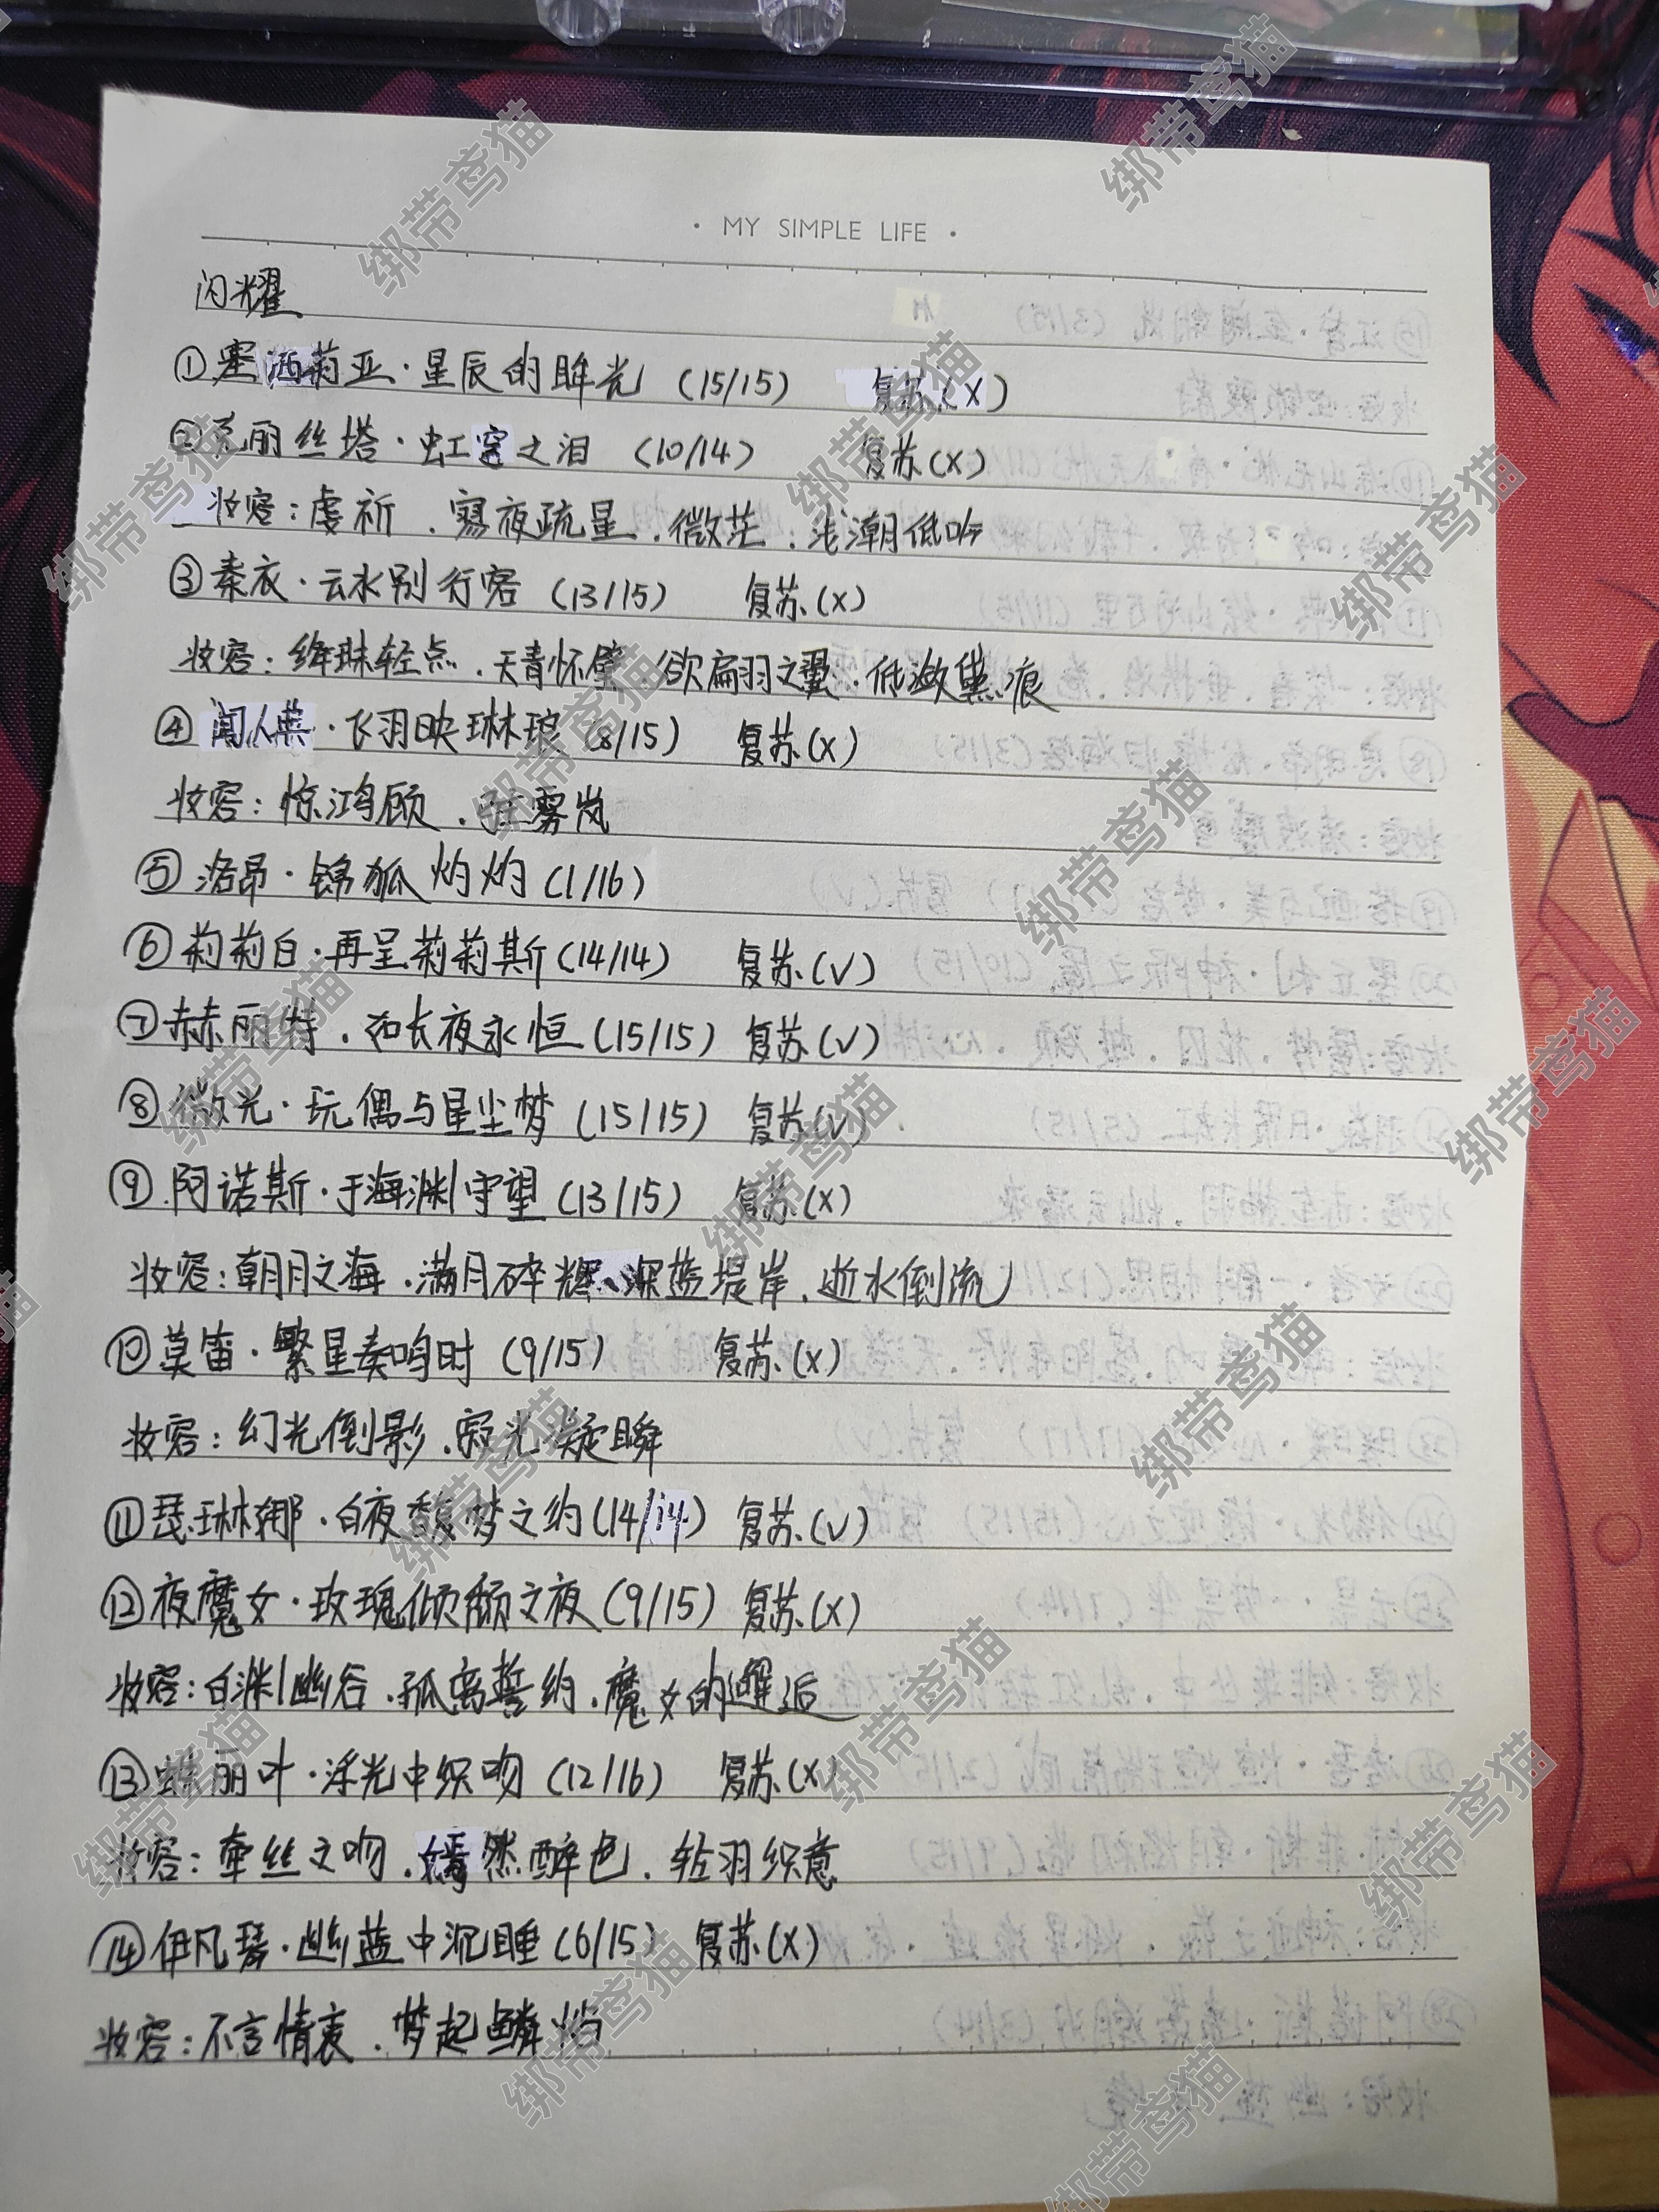 · MY SIMPLE LIFE ·
闪耀
①塞西莉亚·星辰的眸光 (15/15) 复苏(X)
②克丽丝塔·虹窑之泪 (10/14) 复苏(X)
妆容:虔祈、雾夜疏星、微茫、浅潮低吟
③秦衣·云水别行客 (13/15) 复苏(X)
妆容:绛珠轻点、天青怀璧、欲扁羽之翼、低潋黛痕
④闻人奕·飞羽映琳琅 (8/15) 复苏(X)
妆容:惊鸿顾、雾岚
⑤洛昂·锦狐灼灼 (1/16)
⑥莉莉白·再呈莉莉斯(14/14) 复苏(√)
⑦赫丽特·如长夜永恒(15/15) 复苏(√)
⑧微光·玩偶与星尘梦 (15/15) 复苏(√)
⑨阿诺斯·于海渊守望 (13/15) 复苏(X)
妆容:朝月之海、满月碎辉、深蓝堤岸、逝水倒流
⑩莫笛·繁星奏鸣时 (9/15) 复苏(X)
妆容:幻光倒影、寂光凝瞬
⑪瑟琳娜·白夜馥梦之约(14/14) 复苏(√)
⑫夜魔女·玫瑰倾颓之夜(9/15) 复苏(X)
妆容:白渊幽谷、孤高誓约、魔女的邂逅
⑬蛛丽叶·浮光中织吻 (12/16) 复苏(X)
妆容:牵丝之吻、嫣然醉色、轻羽织意
⑭伊凡琴·幽蓝中沉睡 (6/15) 复苏(X)
妆容:不言情衷、梦起鳞
绑带鸢猫